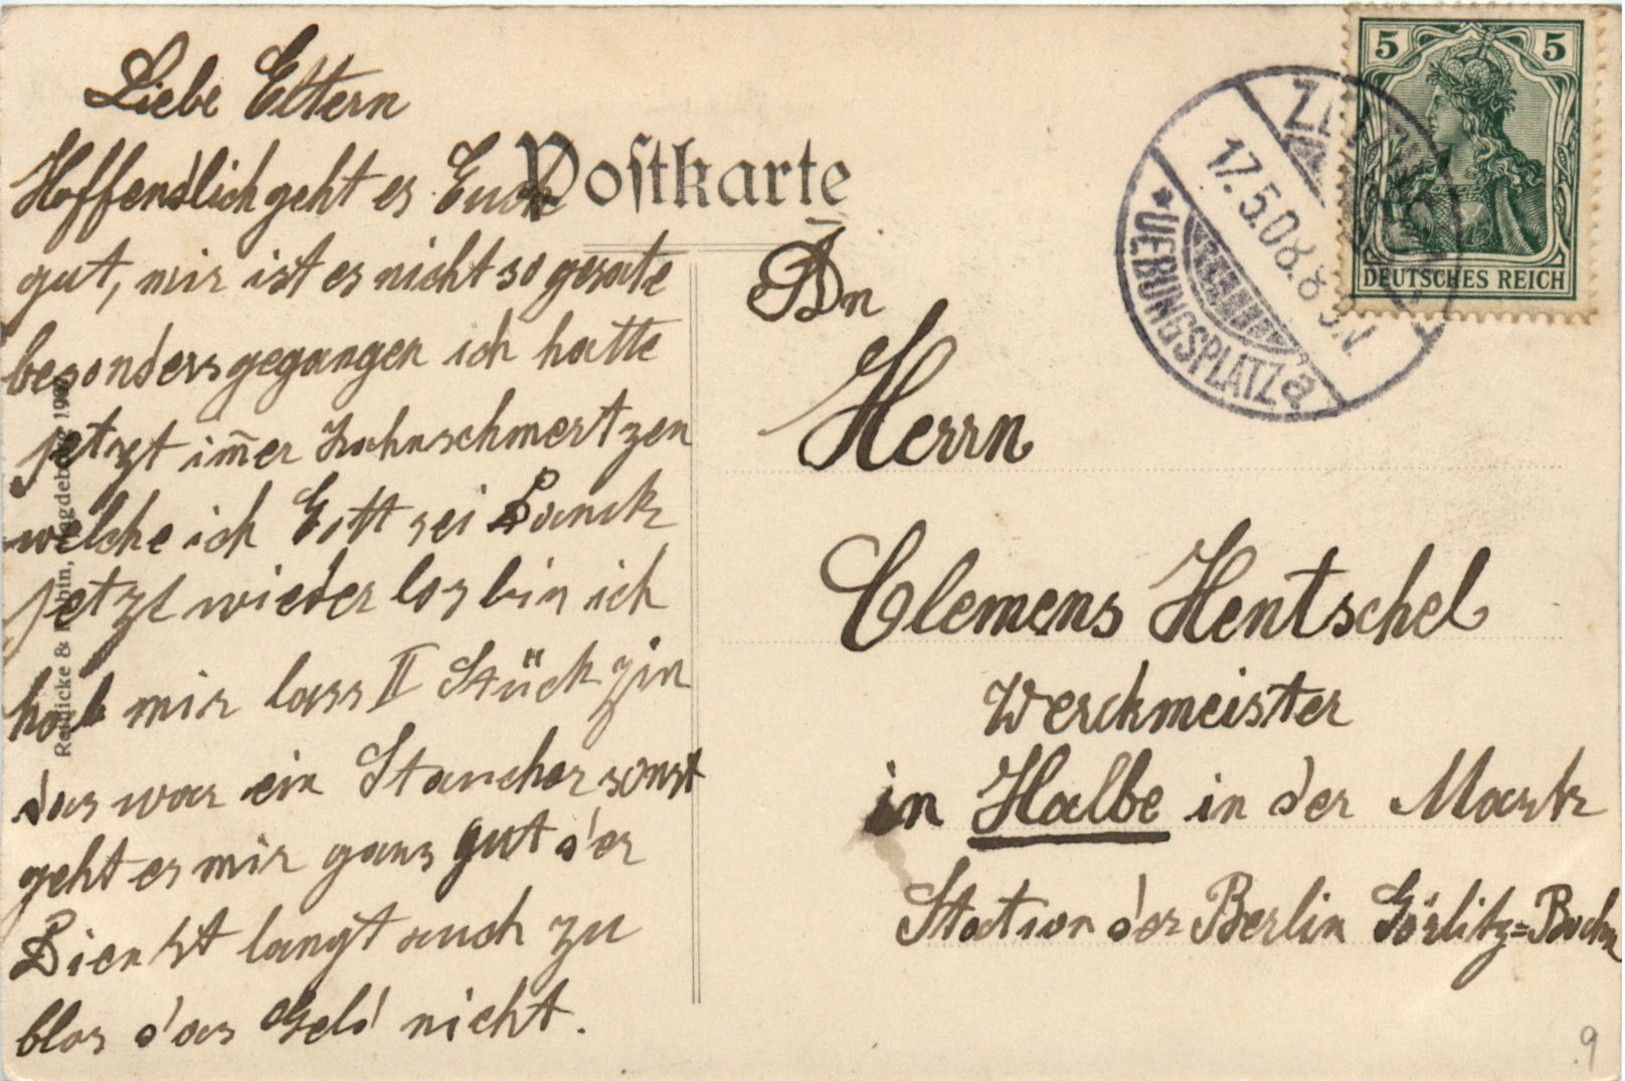 Liebe Eltern
Hoffendlich geht es Euch
gut, mir ist es nicht so gerate
besonders gegangen ich hatte
jetzt im̅er Zahnschmertzen
welche ich Gott sei Danck
jetzt wieder los bin ich
hab mir lass II Stück zin
das war ein Staucher sonst
geht es mir gans gut der
Dienst langt auch zu
blos das Geld nicht.
Postkarte
An
Herrn
Clemens Hentschel
Werckmeister
in Halbe in der Mark
Station der Berlin Görlitz=Bahn
5 5
DEUTSCHES REICH
17.5.08. 8-9N.
* UEBUNGSPLATZ a
Reinicke & Rubin, Magdeburg 190
9